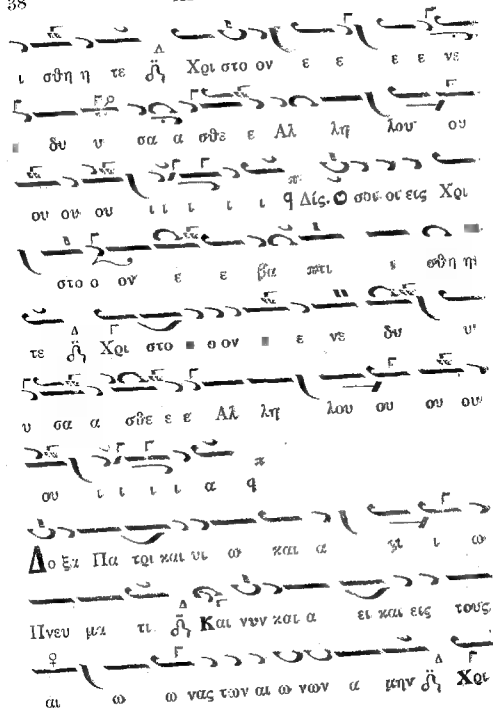 38
ι σθη η τε Χρι στο ον ε ε ε ε νε
δυ υ σα α σθε ε Αλ λη λου ου
ου ου ου ι ι ι ι ι Δίς. Ο σοι οι εις Χρι
στο ο ον ε ε βα πτι ι σθη η
τε Χρι στο ο ον ε νε δυ υ
υ σα α σθε ε ε Αλ λη λου ου ου ου
ου ι ι ι ι α
Δο ξα Πα τρι και υι ω και α γι ι ω
Πνευ μα τι Και νυν και α ει και εις τους
αι ω ω νας των αι ω νων α μην Χρι